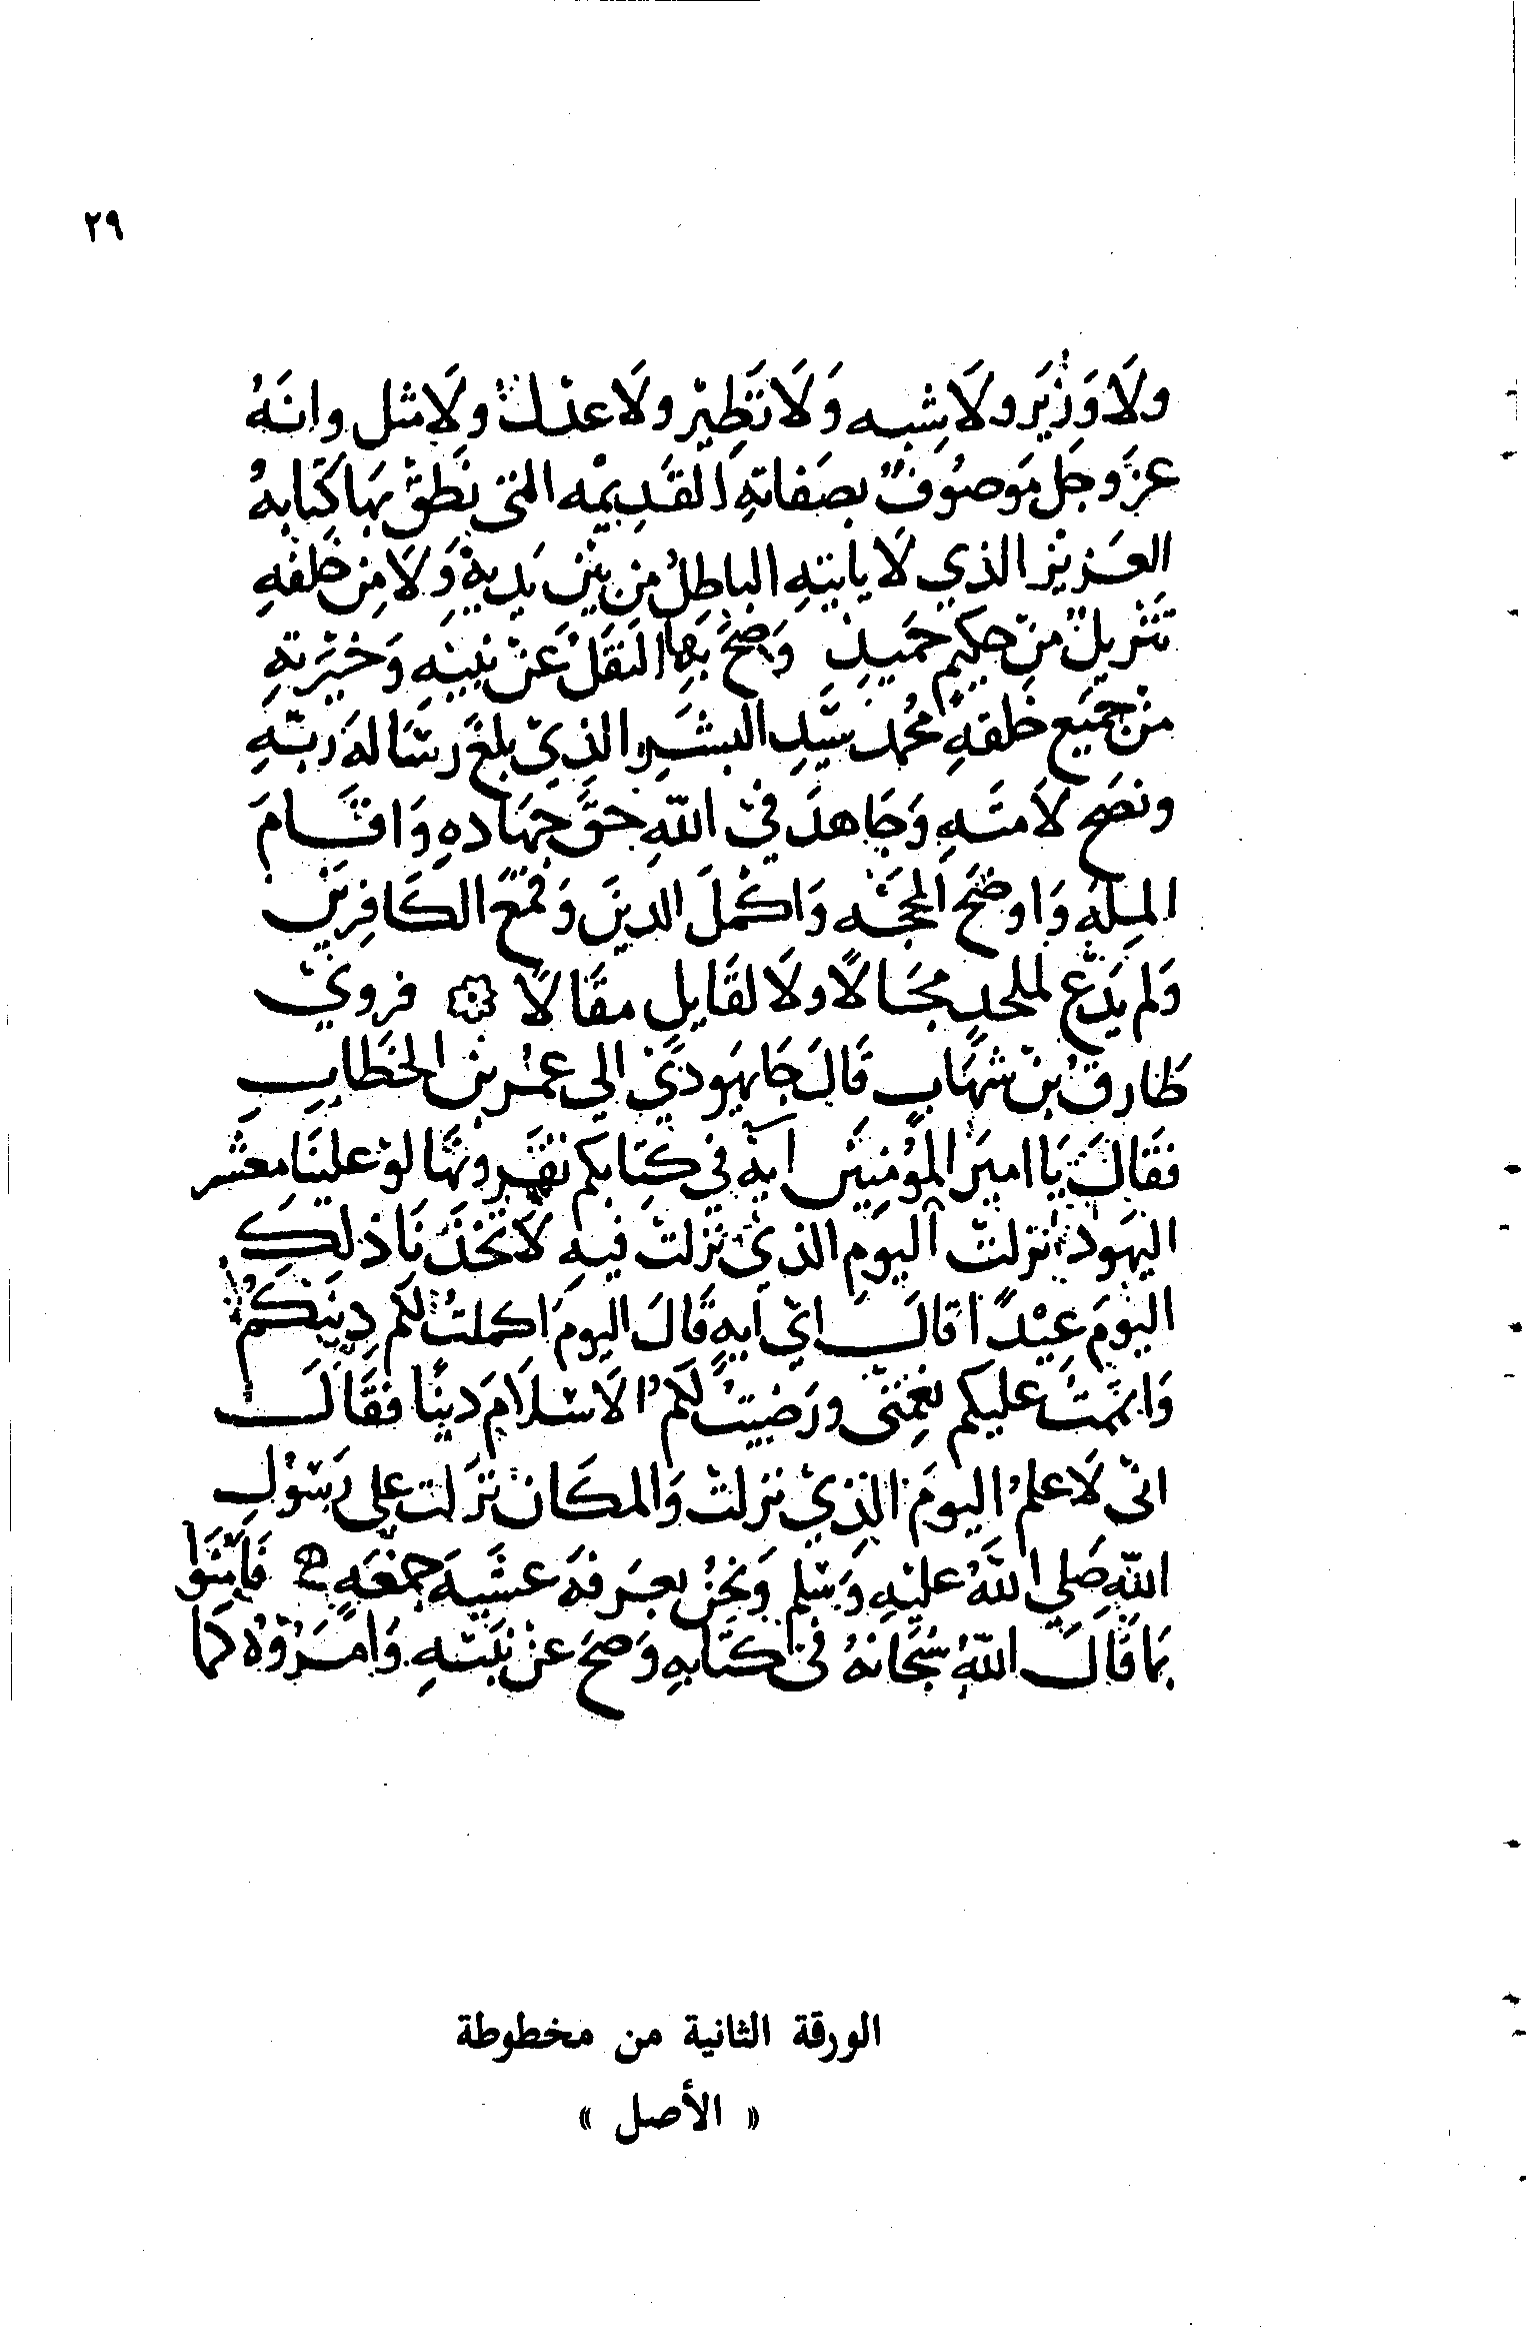 ٢٩
ولَا وَزِيَر ولَا شبه وَلَا نَظِيْر ولَا عدل ولَا مثل وانَهُ
عزَ وجَل مَوصُوفٌ بصَفاتهِ القَدِيمْه التى نَطقْ بهَا كِتَابهُ
العَزيز الذي لَا ياتيهِ الباطِلُ مِن بيْن يَديهْ وَلَا مِنْ خلْفهِ
تَنْزيلٌ منْ حكيمٍ حَميدٍ وَصَحَ بهَا النَقَلْ عَنْ نبيهِ وَخيْرَتهِ
منْ جَميَع خَلقهِ محُمد سَيّدِ البشَرِ الذِيْ بلغَ رسَالهَ رَبّهِ
ونصَح لاَمتَهِ وَجَاهدَ فيْ اللّهِ حقَّ جهَادهِ وَاقَامَ
المِلهَ وَاوضَحَ المحجَّه وَاكمْلَ الدينَ وَقمَعَ الكَافِرِيَن
وَلم يَدَع لملحدٍ مَجَالًا ولَا لقَايلٍ مقَالًا ۞ فرويْ
طَارق بُنْ شهَابٍ قَالَ جَا يهَوديٌ الي عمُر بن الخطَابِ
فقَالَ يَا امير المؤمِنيَن ايهٌ فيْ كتِابكم تقَرونهَا لوْ علينَا معشر
اليهَود نزلتْ اليَومِ الذيْ نَزلتْ فيهِ لَاتخَذَنَا ذلِكَ
اليَومَ عيْدًا قالَ ايّ ايهٍ قَالَ اليومَ اكملتُ لكم دِينَكمُ
وَاتممَتُ عليكم نعمِتى ورَضيِتُ لكمُ الاَسْلَامَ دينًا فقَالَ
انّى لَاعلمُ اليومَ الذِيْ نزلتْ وَالمكَانْ نزَلت على رَسُولِ
اللّهِ صَلي اللّهُ عليْهِ وَسَلم وَنحنُ بعَرفهَ عشَيهَ جمُعَهٍ فَامَنُوا
بمَا قَالَ اللّهُ سُبحَانهُ فىْ كتَابهِ وَصحَ عنْ نبيّهِ وَامَرُوْهُ كما
الورقة الثانية من مخطوطة
« الأصل »